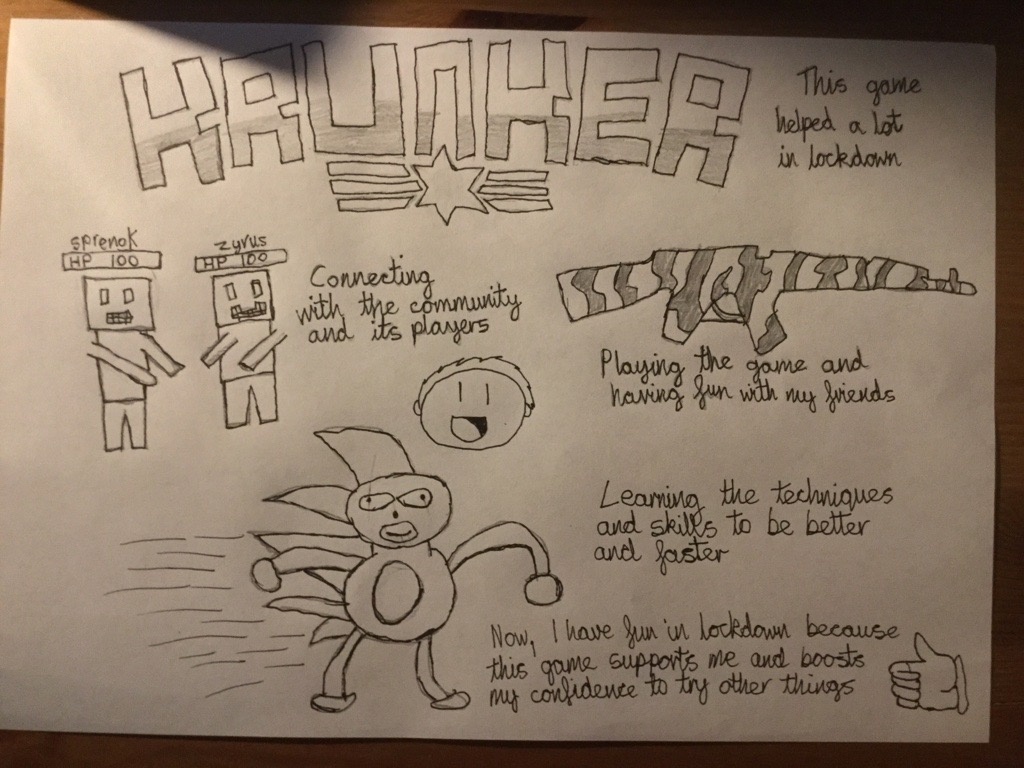 KRUNKER
This game
helped a lot
in lockdown
sprenok
HP 100
zyrus
HP 100
Connecting
with the community
and its players
Playing the game and
having fun with my friends
Learning the techniques
and skills to be better
and faster
Now, I have fun in lockdown because
this game supports me and boosts
my confidence to try other things